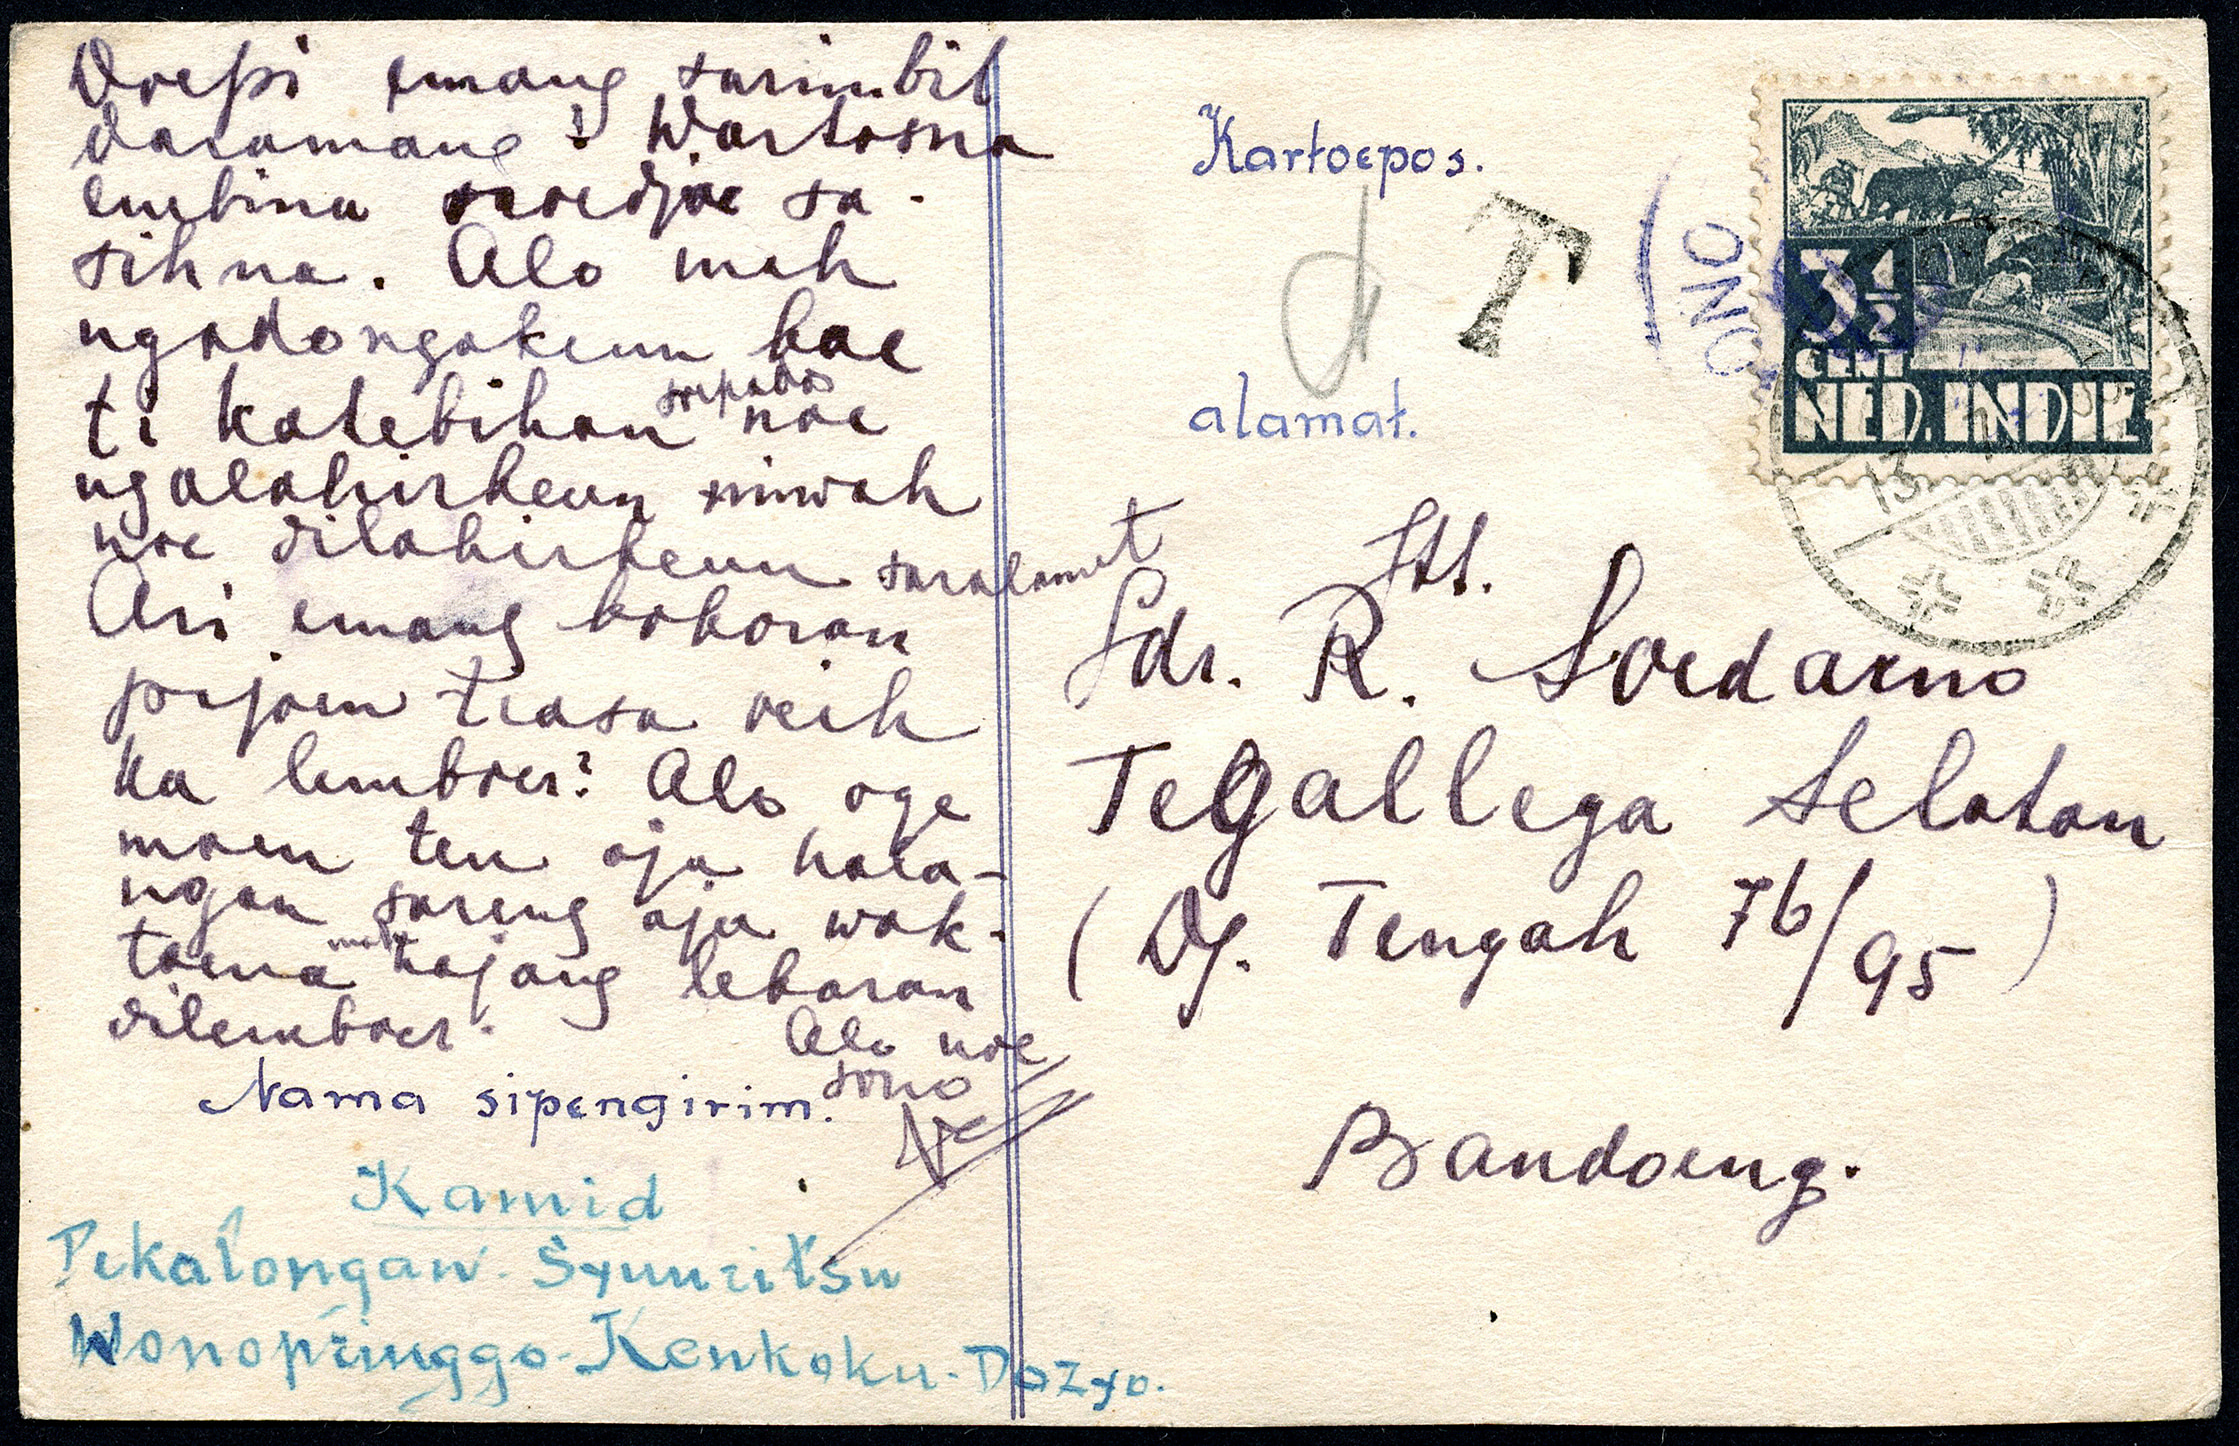 Doepi emang sarimbit
daramang? Wartosna
embina soedjoe sa-
sihna. Alo mah
ngadongakeun bae
ti katebihan soepados noe
ngalahirkeun miwah
noe dilahirkeun saralamet
Ari emang boboran
pijoen tiasa oeih
ka lemboer? Alo oge
moen teu aja hala-
ngan sareng aja wak-
toena mah hajang lebaran
dilemboer.
Alo noe
sono
Nama sipengirim.
Kamid
Pekalongan-Syuuritsu
Wonopringgo-Kenkoku-Dozyo.
Kartoepos.
T
ONO
3½
CENT
NED. INDIE
13
alamat.
Jtt.
Sdr. R. Soedarno
Tegallega Selatan
(Dj. Tengah 76/95)
Bandoeng.